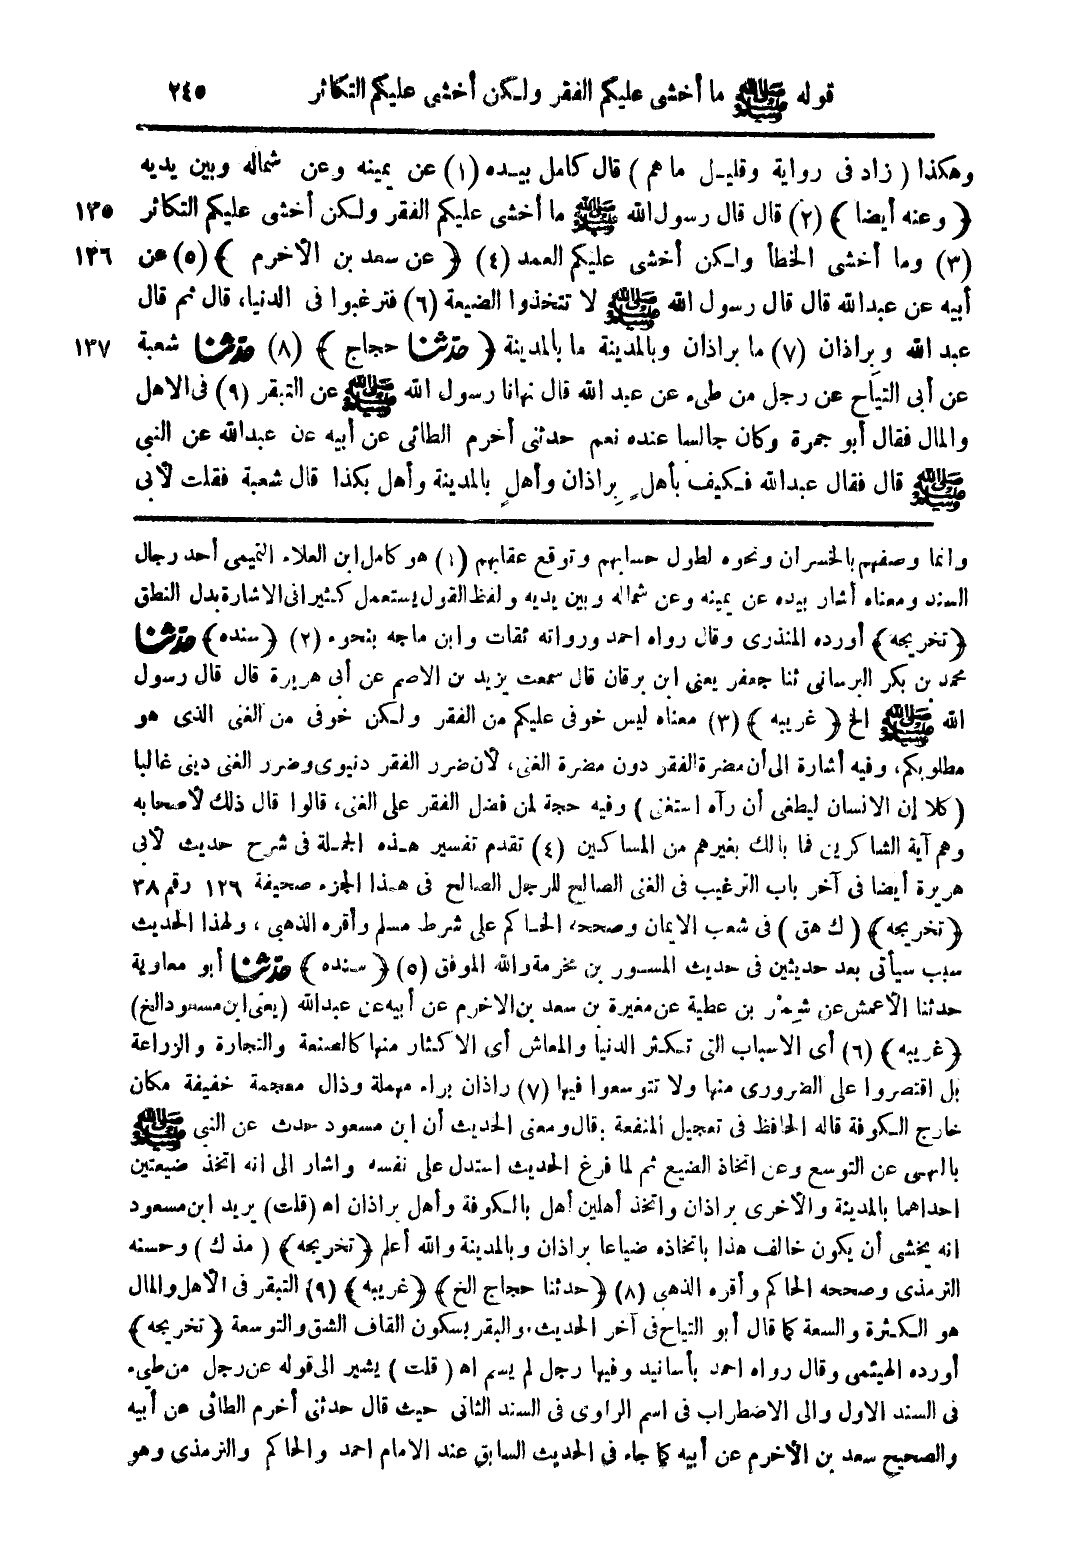 قوله ﷺ ما أخشى عليكم الفقر ولكن أخشى عليكم التكاثر ٢٤٥
وهكذا (زاد فى رواية وقليل ماهم) قال كامل بيده (١) عن يمينه وعن شماله وبين يديه
١٣٥ ﴿وعنه أيضا﴾ (٢) قال قال رسول الله ﷺ ما أخشى عليكم الفقر ولكن أخشى عليكم التكاثر
١٣٦ (٣) وما أخشى الخطأ ولكن أخشى عليكم العمد (٤) ﴿عن سعد بن الأخرم﴾ (٥) عن
أبيه عن عبدالله قال قال رسول الله ﷺ لا تتخذوا الضيعة (٦) فترغبوا فى الدنيا، قال ثم قال
١٣٧ عبد الله وبراذان (٧) ما براذان وبالمدينة ما بالمدينة ﴿حدثنا حجاج﴾ (٨) حدثنا شعبة
عن أبى التياح عن رجل من طىء عن عبد الله قال نهانا رسول الله ﷺ عن التبقر (٩) فى الاهل
والمال فقال أبو جمرة وكان جالسا عنده نعم حدثنى أخرم الطائى عن أبيه عن عبدالله عن النبى
ﷺ قال فقال عبدالله فكيف بأهلٍ براذان وأهلٍ بالمدينة وأهل بكذا قال شعبة فقلت لأبى
وانما وصفهم بالخسران ونحوه لطول حسابهم وتوقع عقابهم (١) هو كامل ابن العلاء التميمى أحد رجال
السند ومعناه أشار بيده عن يمينه وعن شماله وبين يديه ولفظ القول يستعمل كثيرا فى الاشارة بدل النطق
﴿تخريجه﴾ أورده المنذرى وقال رواه احمد ورواته ثقات وابن ماجه بنحوه (٢) ﴿سنده﴾ حدثنا
محمد بن بكر البرسانى ثنا جعفر يعنى ابن برقان قال سمعت يزيد بن الاصم عن أبى هريرة قال قال رسول
الله ﷺ الخ ﴿غريبه﴾ (٣) معناه ليس خوفى عليكم من الفقر ولكن خوفى من الغنى الذى هو
مطلوبكم، وفيه أشارة الى أن مضرة الفقر دون مضرة الغنى، لأن ضرر الفقر دنيوى وضرر الغنى دينى غالبا
(كلا إن الانسان ليطغى أن رآه استغنى) وفيه حجة لمن فضل الفقر على الغنى، قالوا قال ذلك لأصحابه
وهم آية الشاكرين فما بالك بغيرهم من المساكين (٤) تقدم تفسير هذه الجملة فى شرح حديث لأبى
هريرة أيضا فى آخر باب الترغيب فى الغنى الصالح للرجل الصالح فى هذا الجزء صحيفة ١٢٦ رقم ٣٨
﴿تخريجه﴾ (ك هق) فى شعب الايمان وصححه الحاكم على شرط مسلم وأقره الذهبى، ولهذا الحديث
سبب سيأتى بعد حديثين فى حديث المسور بن مخرمة والله الموفق (٥) ﴿سنده﴾ حدثنا أبو معاوية
حدثنا الأعمش عن شمر بن عطية عن مغيرة بن سعد بن الاخرم عن أبيه عن عبدالله (يعنى ابن مسعود الخ)
﴿غريبه﴾ (٦) أى الاسباب التى تكثر الدنيا والمعاش أى الاكثار منها كالصنعة والتجارة والزراعة
بل اقتصروا على الضرورى منها ولا تتوسعوا فيها (٧) راذان براء مهملة وذال معجمة خفيفة مكان
خارج الكوفة قاله الحافظ فى تعجيل المنفعة قال ومعنى الحديث أن ابن مسعود حدث عن النبى ﷺ
بالنهى عن التوسع وعن اتخاذ الضيع ثم لما فرغ الحديث استدل على نفسه واشار الى انه اتخذ ضيعتين
احداهما بالمدينة والأخرى براذان واتخذ أهلين أهل بالكوفة وأهل براذان اه (قلت) يريد ابن مسعود
انه يخشى أن يكون خالف هذا باتخاذه ضياعا براذان وبالمدينة والله أعلم ﴿تخريجه﴾ (مذ ك) وحسنه
الترمذى وصححه الحاكم وأقره الذهبى (٨) ﴿حدثنا حجاج الخ﴾ ﴿غريبه﴾ (٩) التبقر فى الأهل والمال
هو الكثرة والسعة كما قال أبو التياح فى آخر الحديث، والبقر بسكون القاف الشق والتوسعة ﴿تخريجه﴾
أورده الهيثمى وقال رواه احمد بأسانيد وفيها رجل لم يسم اه (قلت) يشير الى قوله عن رجل من طىء
فى السند الاول والى الاضطراب فى اسم الراوى فى السند الثانى حيث قال حدثنى أخرم الطائى عن أبيه
والصحيح سعد بن الأخرم عن أبيه كما جاء فى الحديث السابق عند الامام احمد والحاكم والترمذى وهو